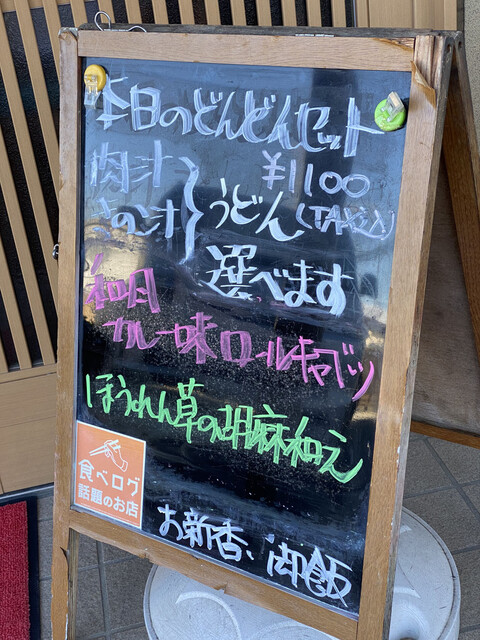 本日のどんどんセット
肉汁 ¥1100
きのこ汁 うどん(TAX込)
選べます
和風
カレー味ロールキャベツ
ほうれん草の胡麻和え
お新香、御飯
食べログ
話題のお店